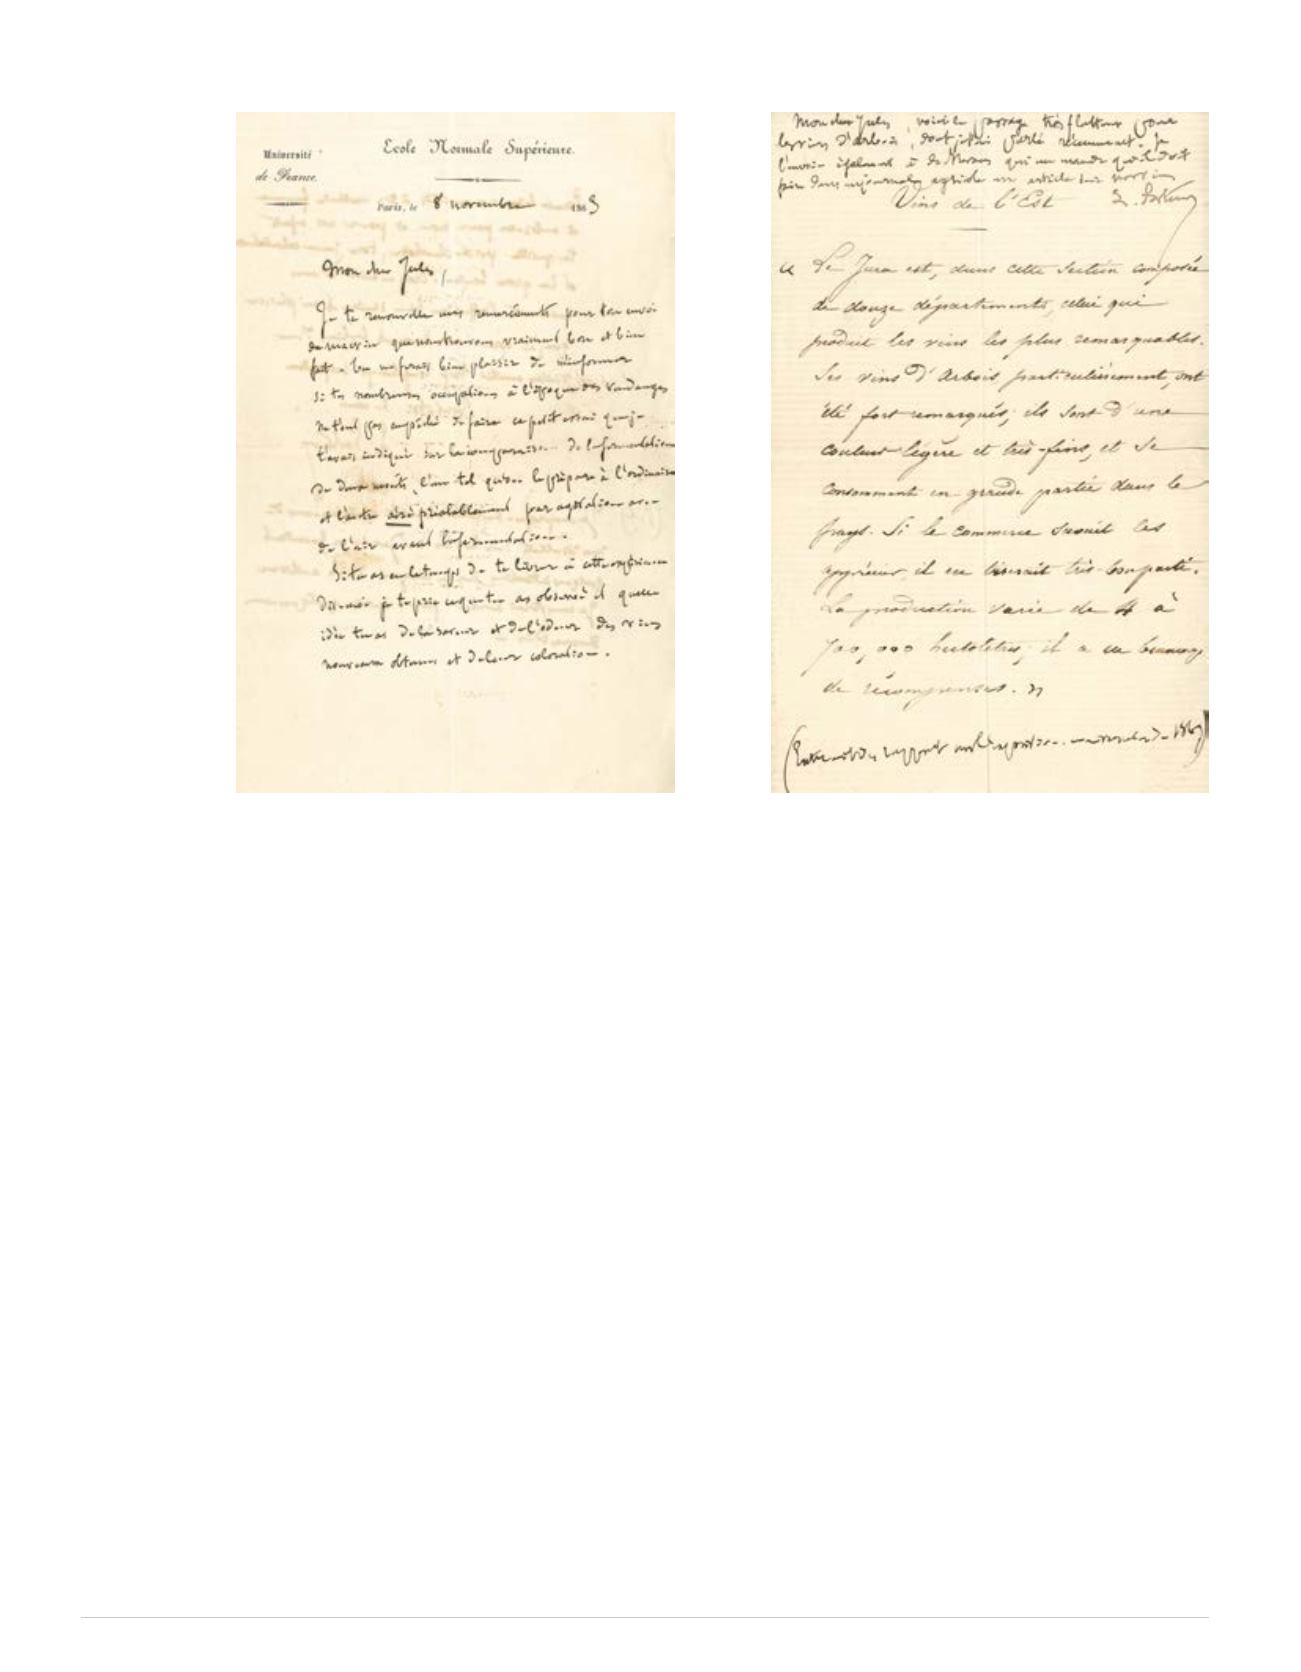 Université
de France.
Ecole Normale Supérieure.
Paris, le 8 novembre 1863
Mon cher Jules,
Je te renouvelle mes remerciements pour ton envoi
de macvin que nous trouvons vraiment bon et bien
fait. Tu me ferais bien plaisir de m'informer
si tes nombreuses occupations à l'époque des vendanges
ne t'ont pas empêché de faire ce petit essai que je
t'avais indiqué sur la comparaison de la fermentation
de deux moûts, l'un tel qu'on le prépare à l'ordinaire
et l'autre aéré préalablement par agitation avec
de l'air avant la fermentation.
Si tu as eu le temps de te livrer à cette expérience
dis-moi je te prie ce que tu as observé et quelle
idée tu as de la saveur et de l'odeur des vins
nouveaux obtenus et de leur coloration.
Mon cher Jules, voici le passage très flatteur pour
les vins d'Arbois, dont je t'ai parlé récemment. Je
l'envoie également à qui me mande qu'il doit
faire dans un journal agricole un article sur nos vins
L. Pasteur
Vins de l'Est
« Le Jura est, dans cette section composée
de douze départements, celui qui
produit les vins les plus remarquables.
Ses vins d'Arbois particulièrement, ont
été fort remarqués; ils sont d'une
couleur légère et très-fins, et se
consomment en grande partie dans le
pays. Si le commerce savait les
apprécier, il en tirerait très-bon parti.
La production varie de 4 à
700,000 hectolitres; il a eu beaucoup
de récompenses. »
(Extrait du rapport sur l'exposition universelle de 1867)